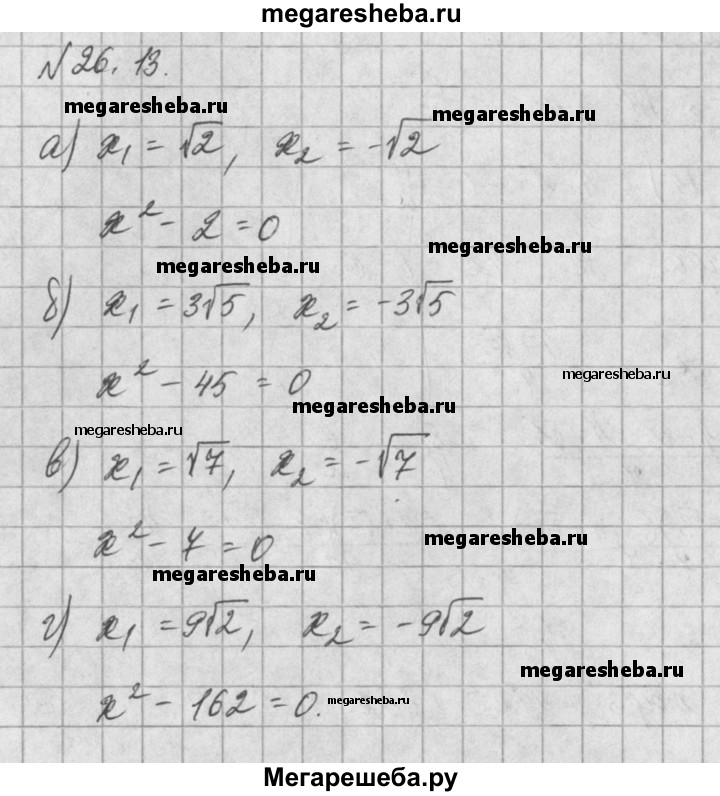 megaresheba.ru
№ 26.13.
megaresheba.ru
megaresheba.ru
а) x₁ = √2, x₂ = -√2
x² - 2 = 0
megaresheba.ru
megaresheba.ru
б) x₁ = 3√5, x₂ = -3√5
megaresheba.ru
x² - 45 = 0
megaresheba.ru
megaresheba.ru
в) x₁ = √7, x₂ = -√7
megaresheba.ru
x² - 7 = 0
megaresheba.ru
г) x₁ = 9√2, x₂ = -9√2
megaresheba.ru
x² - 162 = 0.
megaresheba.ru
Мегарешеба.ру